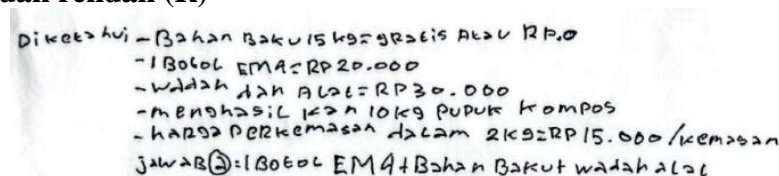 dan rendah (R)
Diketahui - Bahan Baku 15 kg = gratis Atau RP.0
- 1 Botol EM4 = RP 20.000
- wadah dan ALat = RP 30.000
- menghasil kan 10 kg PUPUK kompos
- harga Perkemasan dalam 2KG = RP 15.000 / kemasan
jawab (a) = 1 Botol EM4 + Bahan Baku + wadah alat